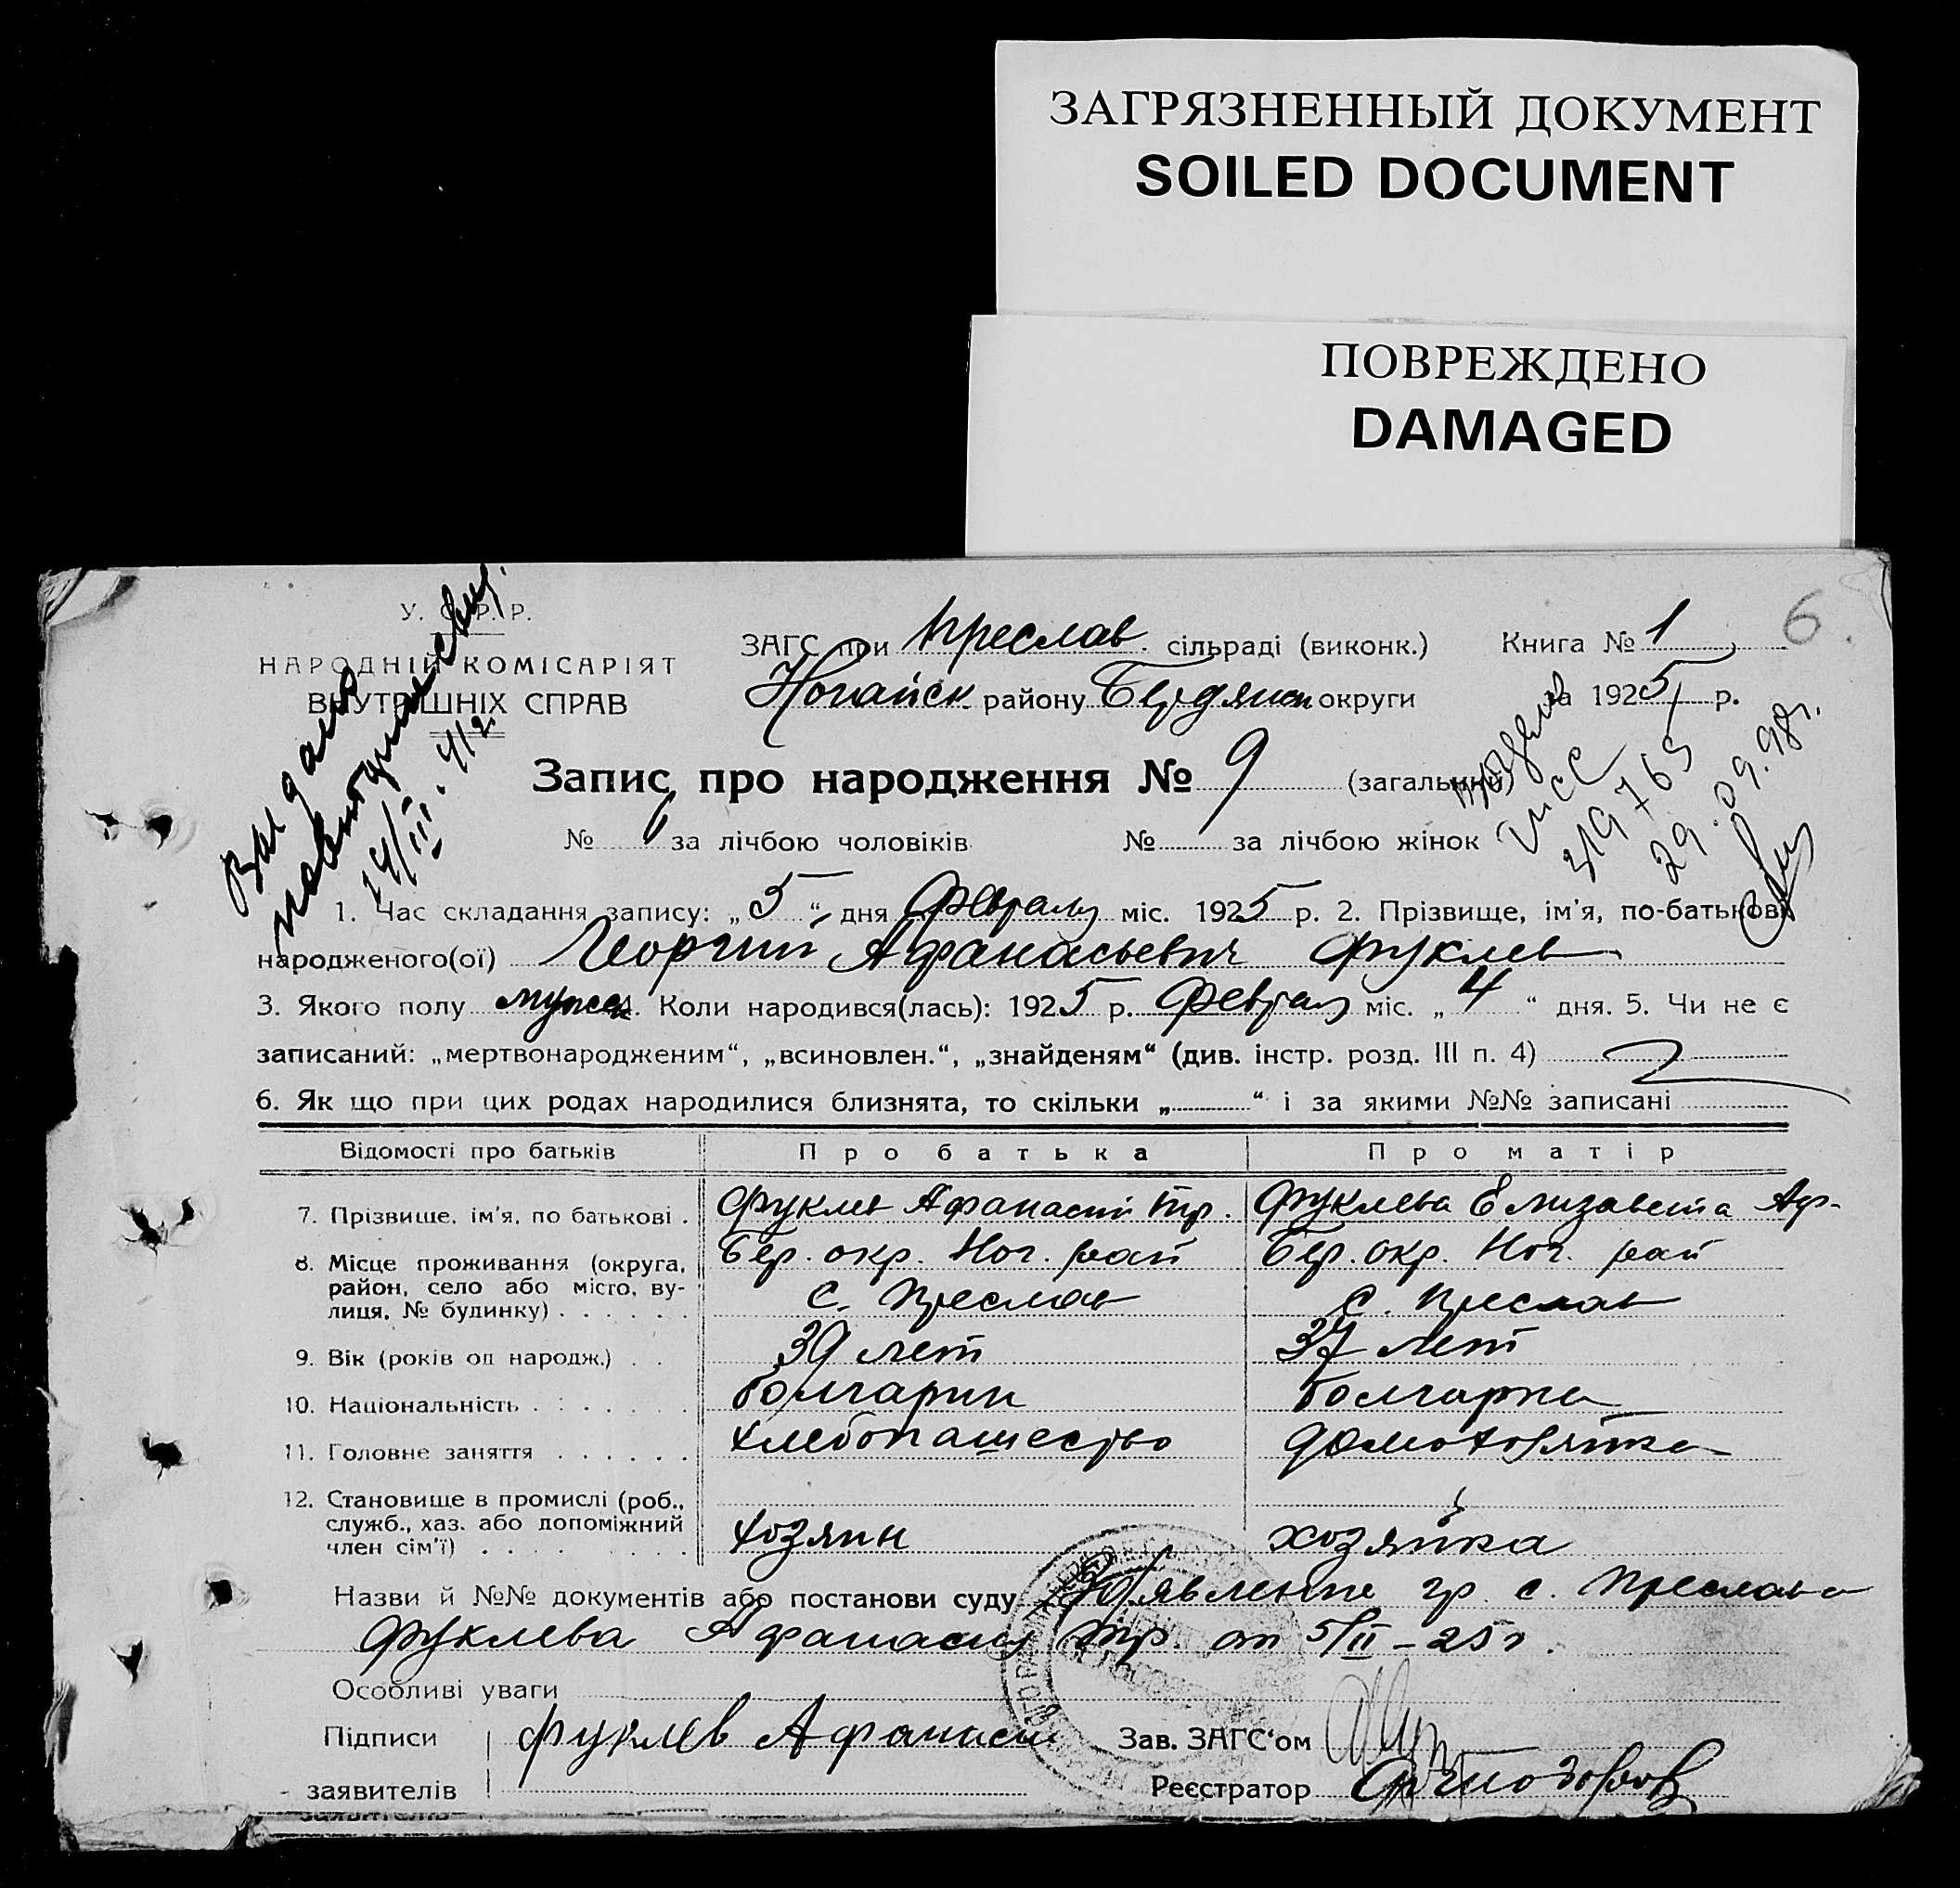 ЗАГРЯЗНЕННЫЙ ДОКУМЕНТ
SOILED DOCUMENT
ПОВРЕЖДЕНО
DAMAGED
6.
У. С. Р. Р.
НАРОДНІЙ КОМІСАРІЯТ
ВНУТРІШНІХ СПРАВ
ЗАГС при Преслав. сільраді (виконк.) Книга № 1
Ногайск району Бердянск округи за 1925 р.
Видано
14/III
29.09.98г.
Запис про народження № 9 (загальний)
№ 6 за лічбою чоловіків № за лічбою жінок
1. Час складання запису: „5“ дня Февраля міс. 1925 р. 2. Прізвище, ім'я, по-батькові
народженого(ої) Георгий Афанасьевич Фуклев
3. Якого полу мужск. Коли народився(лась): 1925 р. Февраля міс. „4“ дня. 5. Чи не є
записаний: „мертвонародженим“, „всиновлен.“, „знайденям“ (див. інстр. розд. III п. 4)
6. Як що при цих родах народилися близнята, то скільки „ “ і за якими №№ записані
Відомості про батьків Про батька Про матір
7. Прізвище, ім'я, по батькові . Фуклев Афанасий Тр. Фуклева Елизавета Аф-
8. Місце проживання (округа, Бер. окр. Ног. рай Бер. окр. Ног. рай
район, село або місто, ву-
лиця, № будинку) . . . . . . с. Преслав с. Преслав
9. Вік (років од народж.) . . 39 лет 37 лет
10. Національність . . . . . . . болгарин болгарка
11. Головне заняття . . . . . . хлебопашество домохозяйка
12. Становище в промислі (роб.,
служб., хаз. або допоміжний
член сім'ї) . . . . . . . хозяин хозяйка
Назви й №№ документів або постанови суду Заявление гр. с. Преслава
Фуклева Афанасия Тр. от 5/II-25г.
Особливі уваги
Підписи Фуклев Афанасий Зав. ЗАГС'ом
заявителів Реєстратор
заявителів